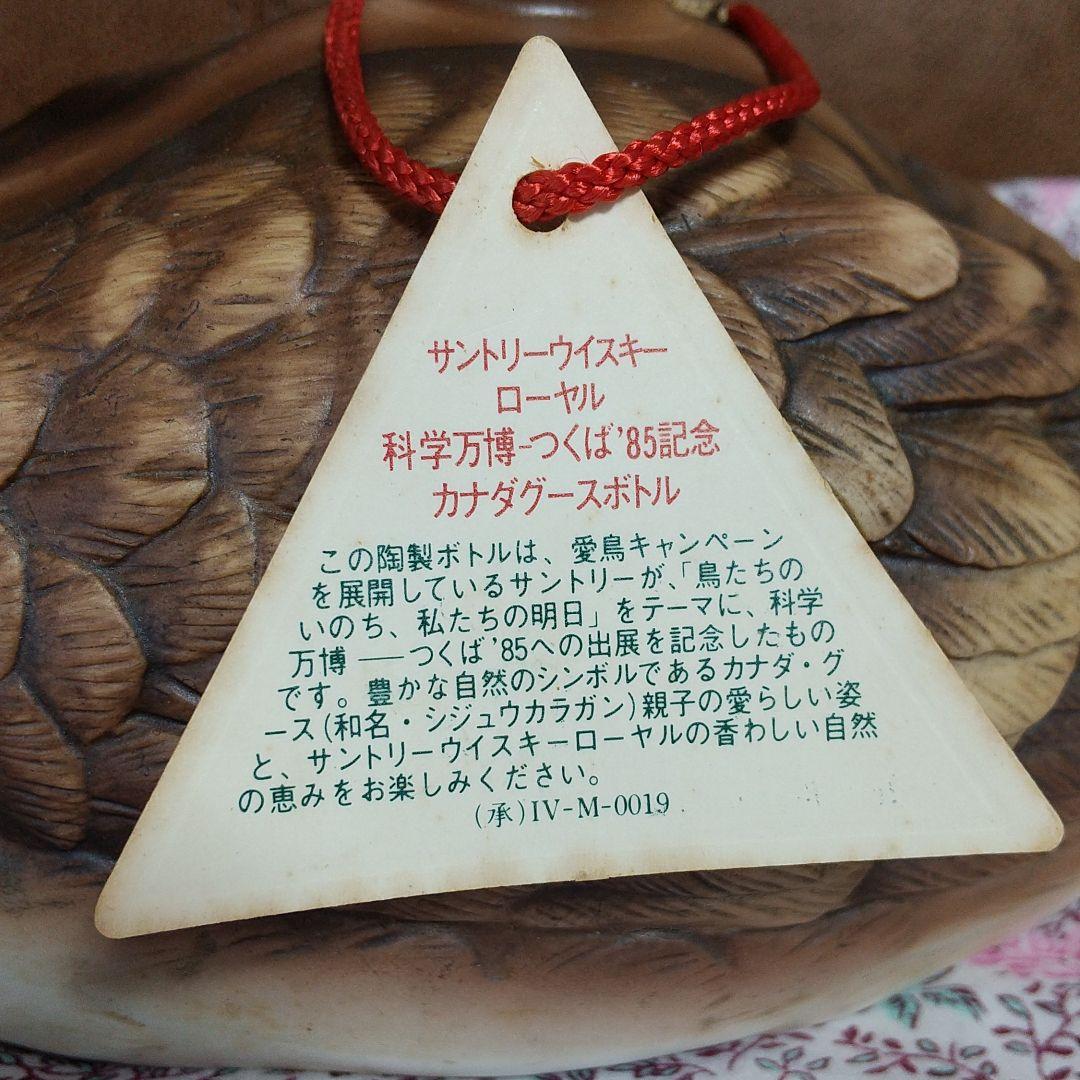 サントリーウイスキー
ローヤル
科学万博-つくば'85記念
カナダグースボトル
この陶製ボトルは、愛鳥キャンペーン
を展開しているサントリーが、「鳥たちの
いのち、私たちの明日」をテーマに、科学
万博――つくば'85への出展を記念したもの
です。豊かな自然のシンボルであるカナダ・グ
ース(和名・シジュウカラガン)親子の愛らしい姿
と、サントリーウイスキーローヤルの香わしい自然
の恵みをお楽しみください。
(承)IV-M-0019